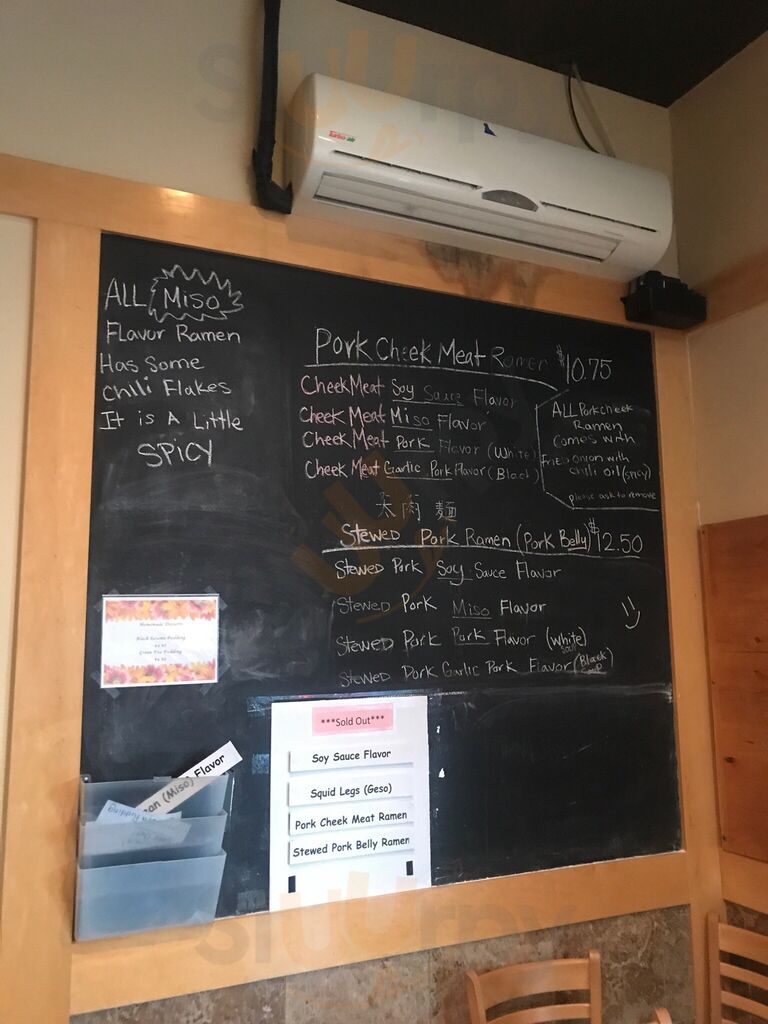 Turbo air
ALL Miso
Flavor Ramen
Has Some
Chili Flakes
It is A Little
SPicy
Pork Cheek Meat Ramen $10.75
Cheek Meat Soy Sauce Flavor
Cheek Meat Miso Flavor
Cheek Meat Pork Flavor (White)
Cheek Meat Garlic Pork Flavor (Black)
ALL Pork cheek
Ramen
Comes with
Fried onion with
chili oil (spicy)
please ask to remove
肉 麺
Stewed Pork Ramen (Pork Belly) $12.50
Stewed Pork Soy Sauce Flavor
Stewed Pork Miso Flavor
Stewed Pork Pork Flavor (White)
Stewed Pork Garlic Pork Flavor (Black)
Homemade Desserts
Black Sesame Pudding
Green Tea Pudding
***Sold Out***
Soy Sauce Flavor
Squid Legs (Geso)
Pork Cheek Meat Ramen
Stewed Pork Belly Ramen
(Miso) Flavor
Pudding
sluurpy